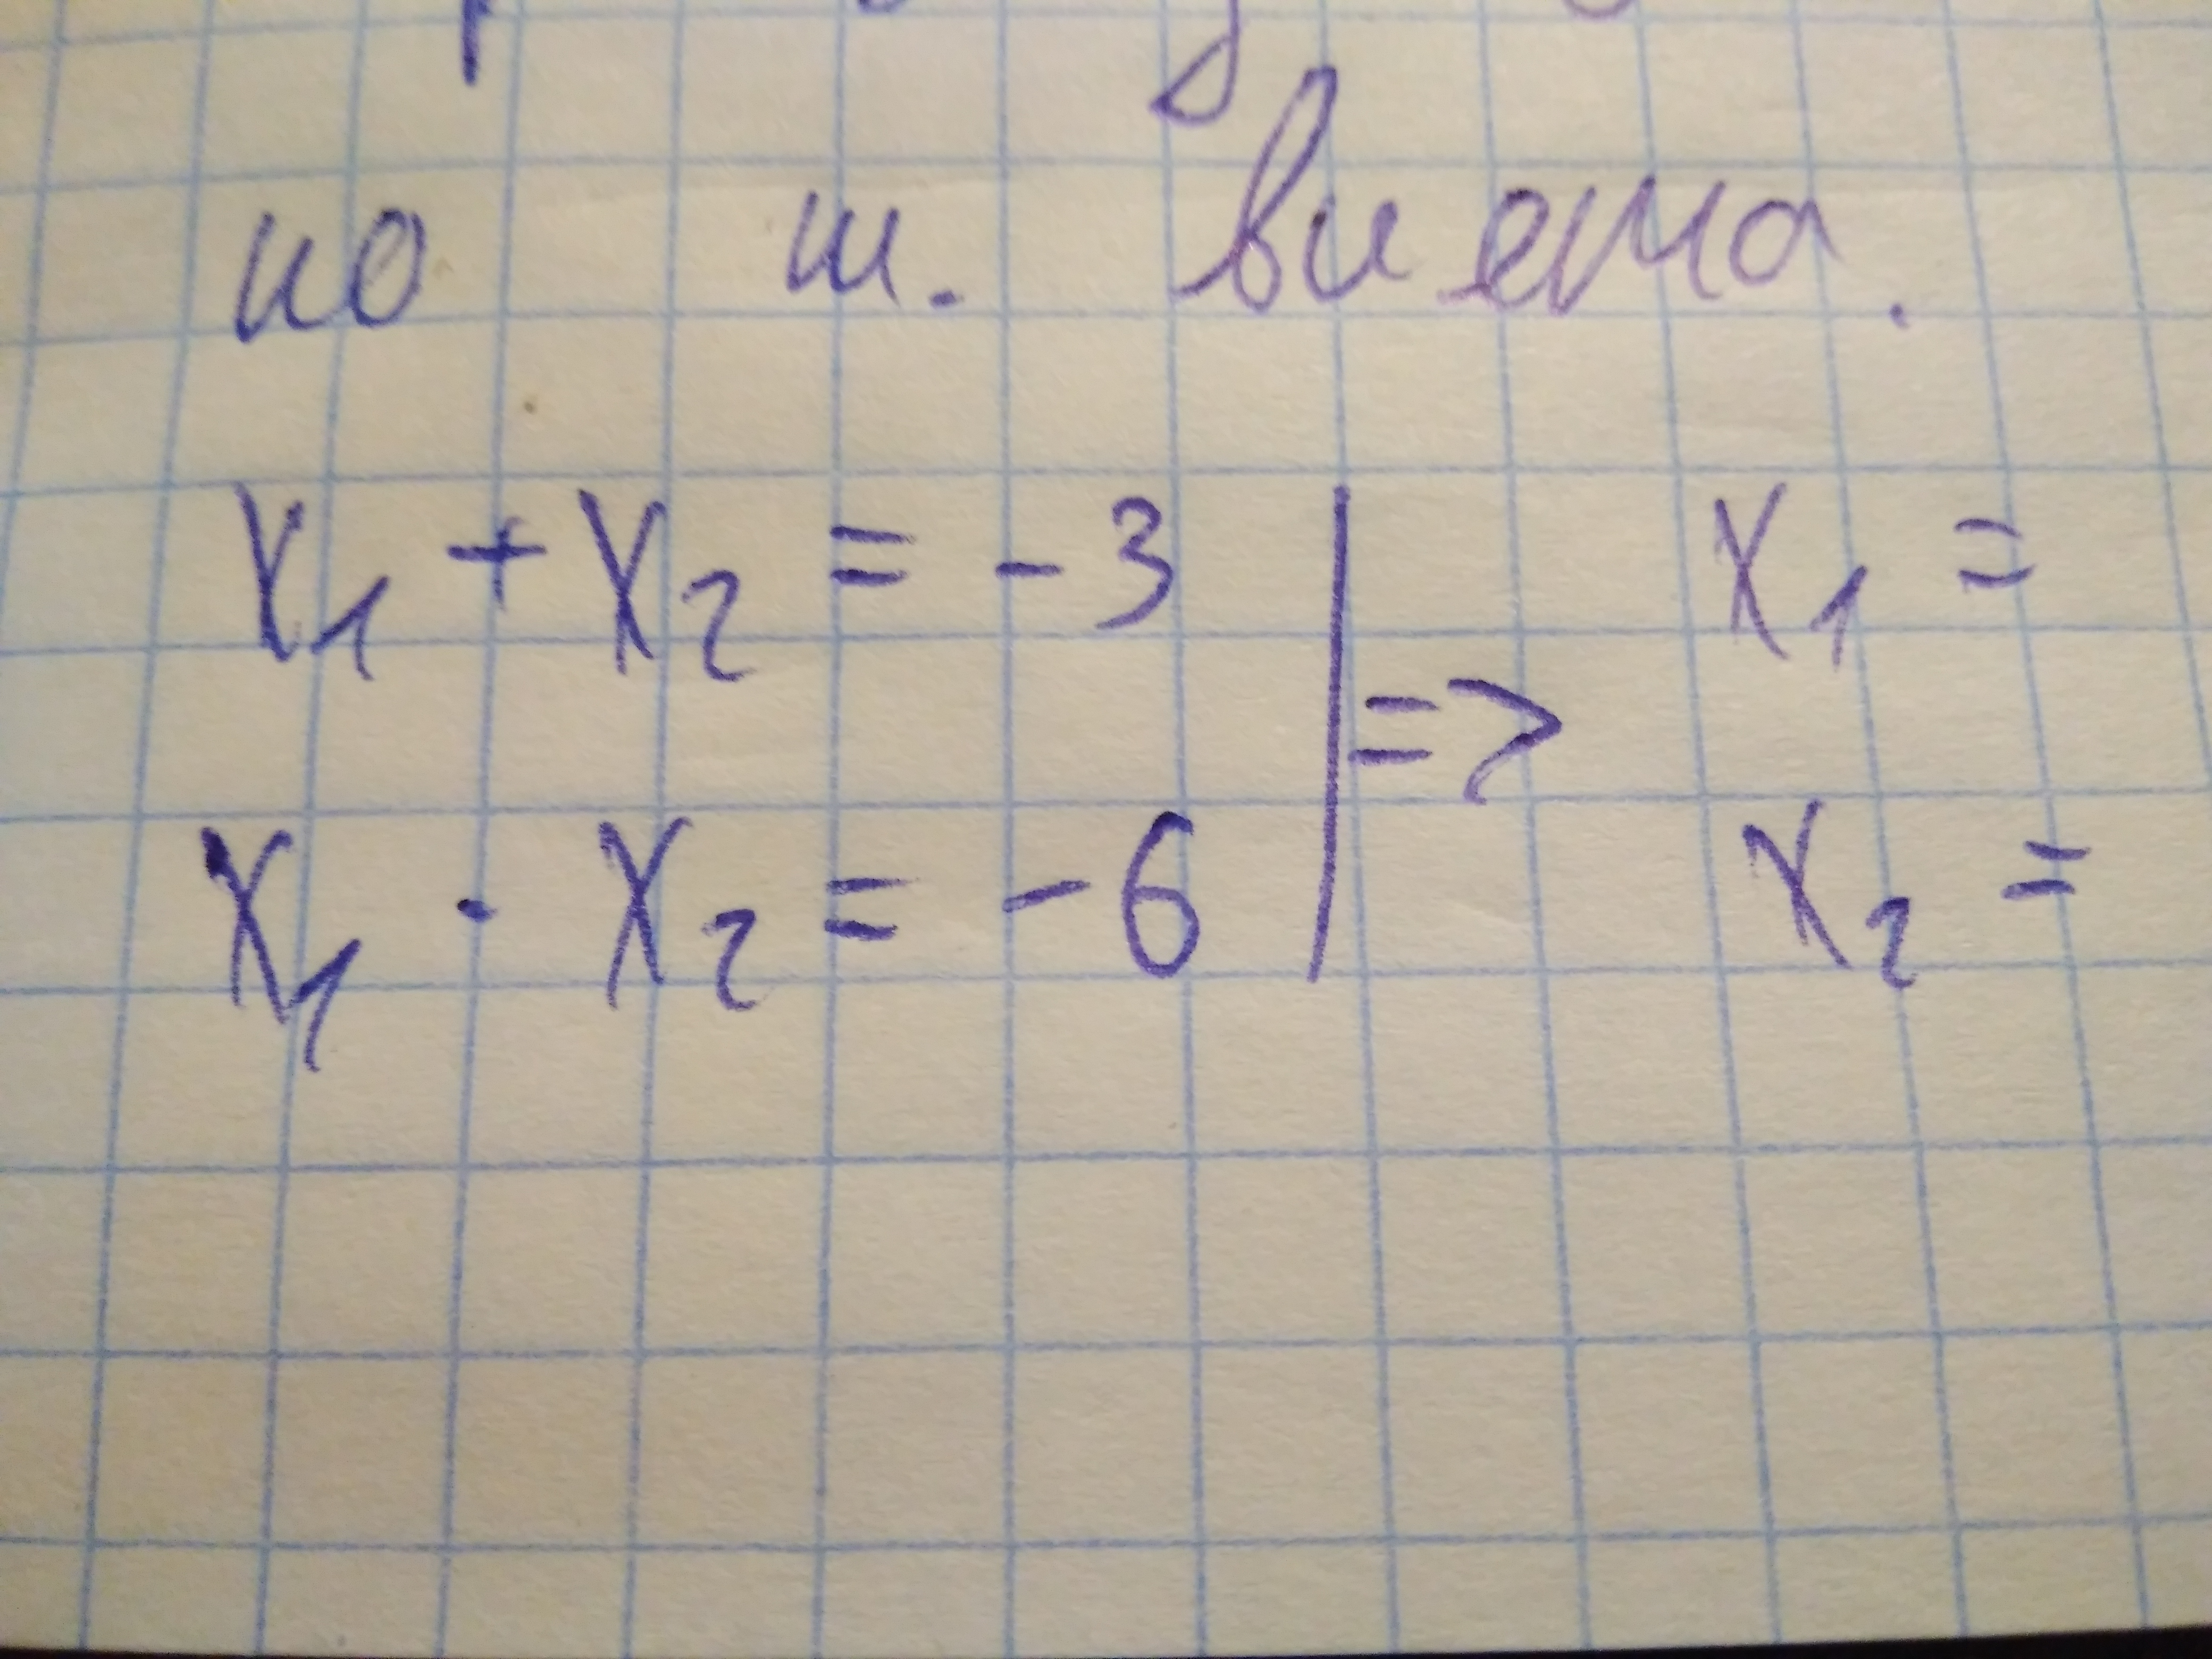 по т. Виета.
x₁ + x₂ = - 3 | => x₁ =
x₁ · x₂ = - 6 | x₂ =